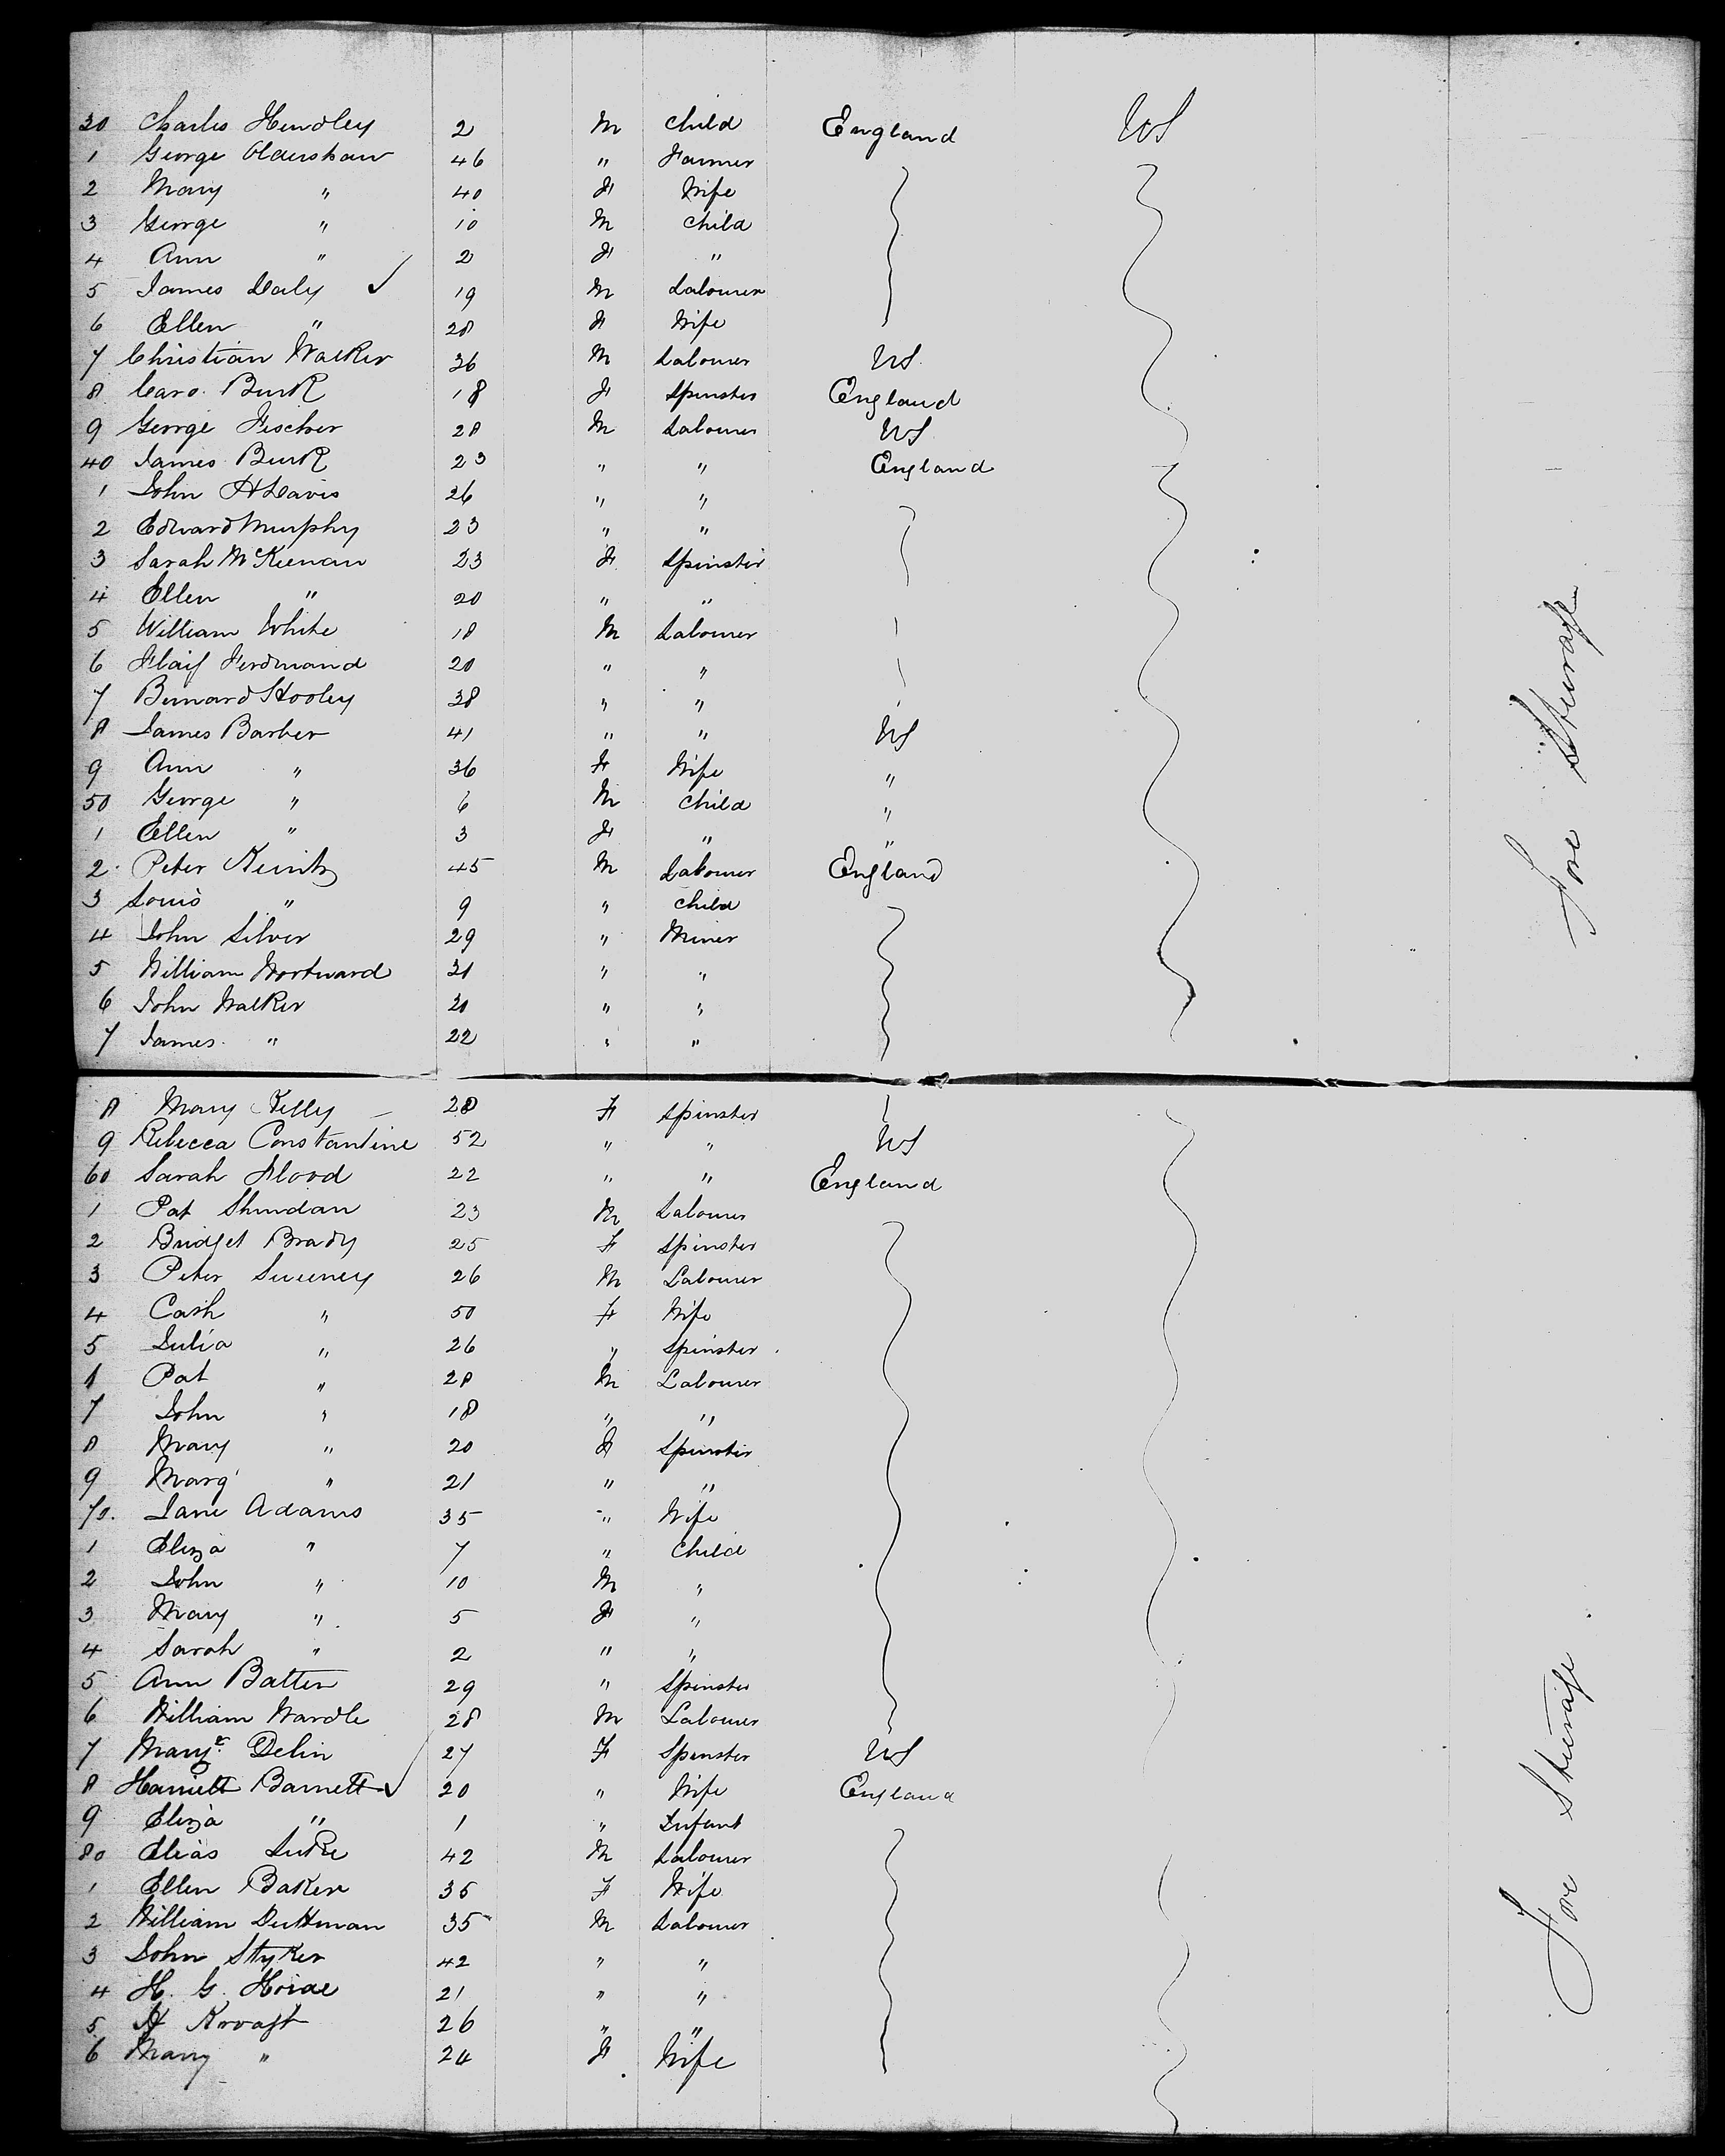 30 Charles Hendley 2 M Child England US
1 George Oldershaw 46 " Farmer
2 Mary " 40 F Wife
3 George " 10 M Child
4 Ann " 2 F "
5 James Daly ✓ 19 M Labourer
6 Ellen " 28 F Wife
7 Christian Walker 36 M Labourer US
8 Caro. Burk 18 F Spinster England
9 George Fischer 28 M Labourer US
40 James Burk 23 " " England
1 John H Davis 26 " "
2 Edward Murphy 23 " "
3 Sarah McKeenan 23 F Spinster
4 Ellen " 20 " "
5 William White 18 M Labourer
6 Ferdinand 20 " "
7 Bernard Hooley 38 " "
8 James Barber 41 " " US
9 Ann " 36 F Wife "
50 George " 6 M Child "
1 Ellen " 3 F " "
2 Peter 45 M Labourer England
3 Louis " 9 " Child
4 John Silver 29 " Miner
5 William Wortward 31 " "
6 John Walker 20 " "
7 James " 22 " "
For Steerage
8 Mary Kelly 28 F Spinster
9 Rebecca Constantine 52 " " US
60 Sarah Flood 22 " " England
1 Pat Sheridan 23 M Labourer
2 Bridget Brady 25 F Spinster
3 Peter Sweeney 26 M Labourer
4 Cath " 50 F Wife
5 Julia " 26 " Spinster
6 Pat " 28 M Labourer
7 John " 18 " "
8 Mary " 20 F Spinster
9 Marg " 21 " "
70. Jane Adams 35 " Wife
1 Eliza " 7 " Child
2 John " 10 M "
3 Mary " 5 F "
4 Sarah " 2 " "
5 Ann Batten 29 " Spinster
6 William Wardle 28 M Labourer
7 Delin 27 F Spinster US
8 Harriett Barnett ✓ 20 " Wife England
9 Eliza " 1 " Infant
80 Elias Luke 42 M Labourer
1 Ellen Baker 36 F Wife
2 William 35 M Labourer
3 John Stryker 42 " "
4 H. G. 21 " "
5 26 " "
6 Mary " 24 F Wife
For Steerage